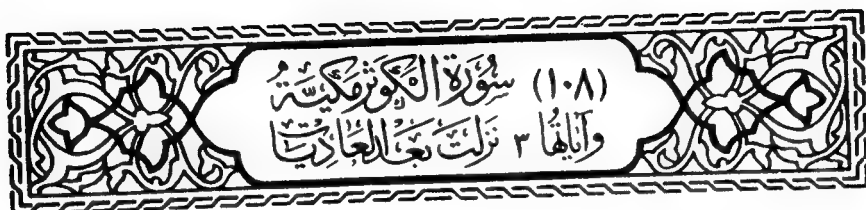 (١٠٨) سُورَةُ الكَوْثَرِ مَكِيَّةٌ
وَآيَاتُهَا ٣ نَزَلَتْ بَعْدَ العَادِيَاتِ